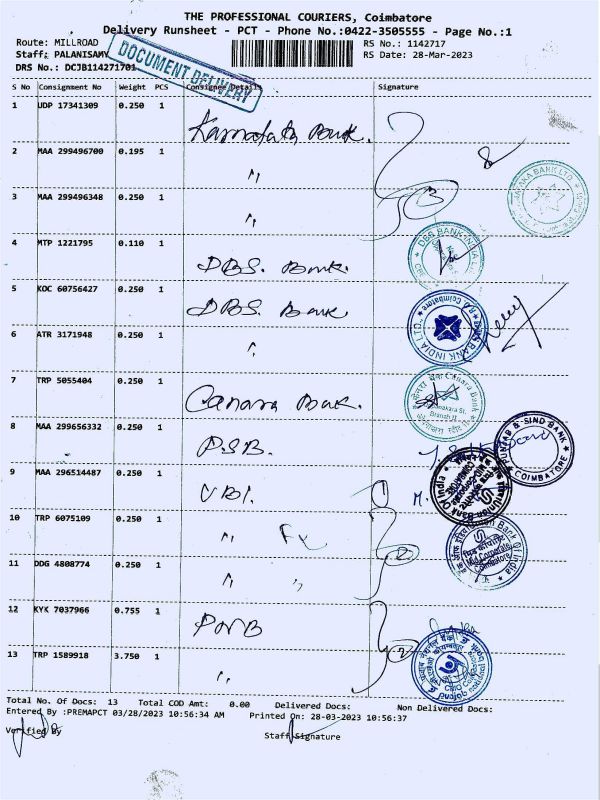 THE PROFESSIONAL COURIERS, Coimbatore
Delivery Runsheet - PCT - Phone No.:0422-3505555 - Page No.:1
Route: MILLROAD RS No.: 1142717
Staff: PALANISAMY RS Date: 28-Mar-2023
DRS No.: DCJB114271701
DOCUMENT DELIVERY
S No Consignment No Weight PCS Consignee Details Signature
1 UDP 17341309 0.250 1 Karnataka Bank.
2 MAA 299496700 0.195 1 "
3 MAA 299496348 0.250 1 " 3
4 MTP 1221795 0.110 1 DBS. Bank.
5 KOC 60756427 0.250 1 DBS. Bank
6 ATR 3171948 0.250 1 "
7 TRP 5055404 0.250 1 Canara Bank.
8 MAA 299656332 0.250 1 P.S.B.
9 MAA 296514487 0.250 1 UBI.
10 TRP 6075109 0.250 1 "
11 DDG 4808774 0.250 1 " "
12 KYK 7037966 0.755 1 PNB
13 TRP 1589918 3.750 1 "
DBS BANK INDIA LTD
Canara Bank
PUNJAB & SIND BANK
COIMBATORE
Union Bank Of India
Total No. Of Docs: 13 Total COD Amt: 0.00 Delivered Docs: Non Delivered Docs:
Entered By :PREMAPCT 03/28/2023 10:56:34 AM Printed On: 28-03-2023 10:56:37
Verified By Staff Signature